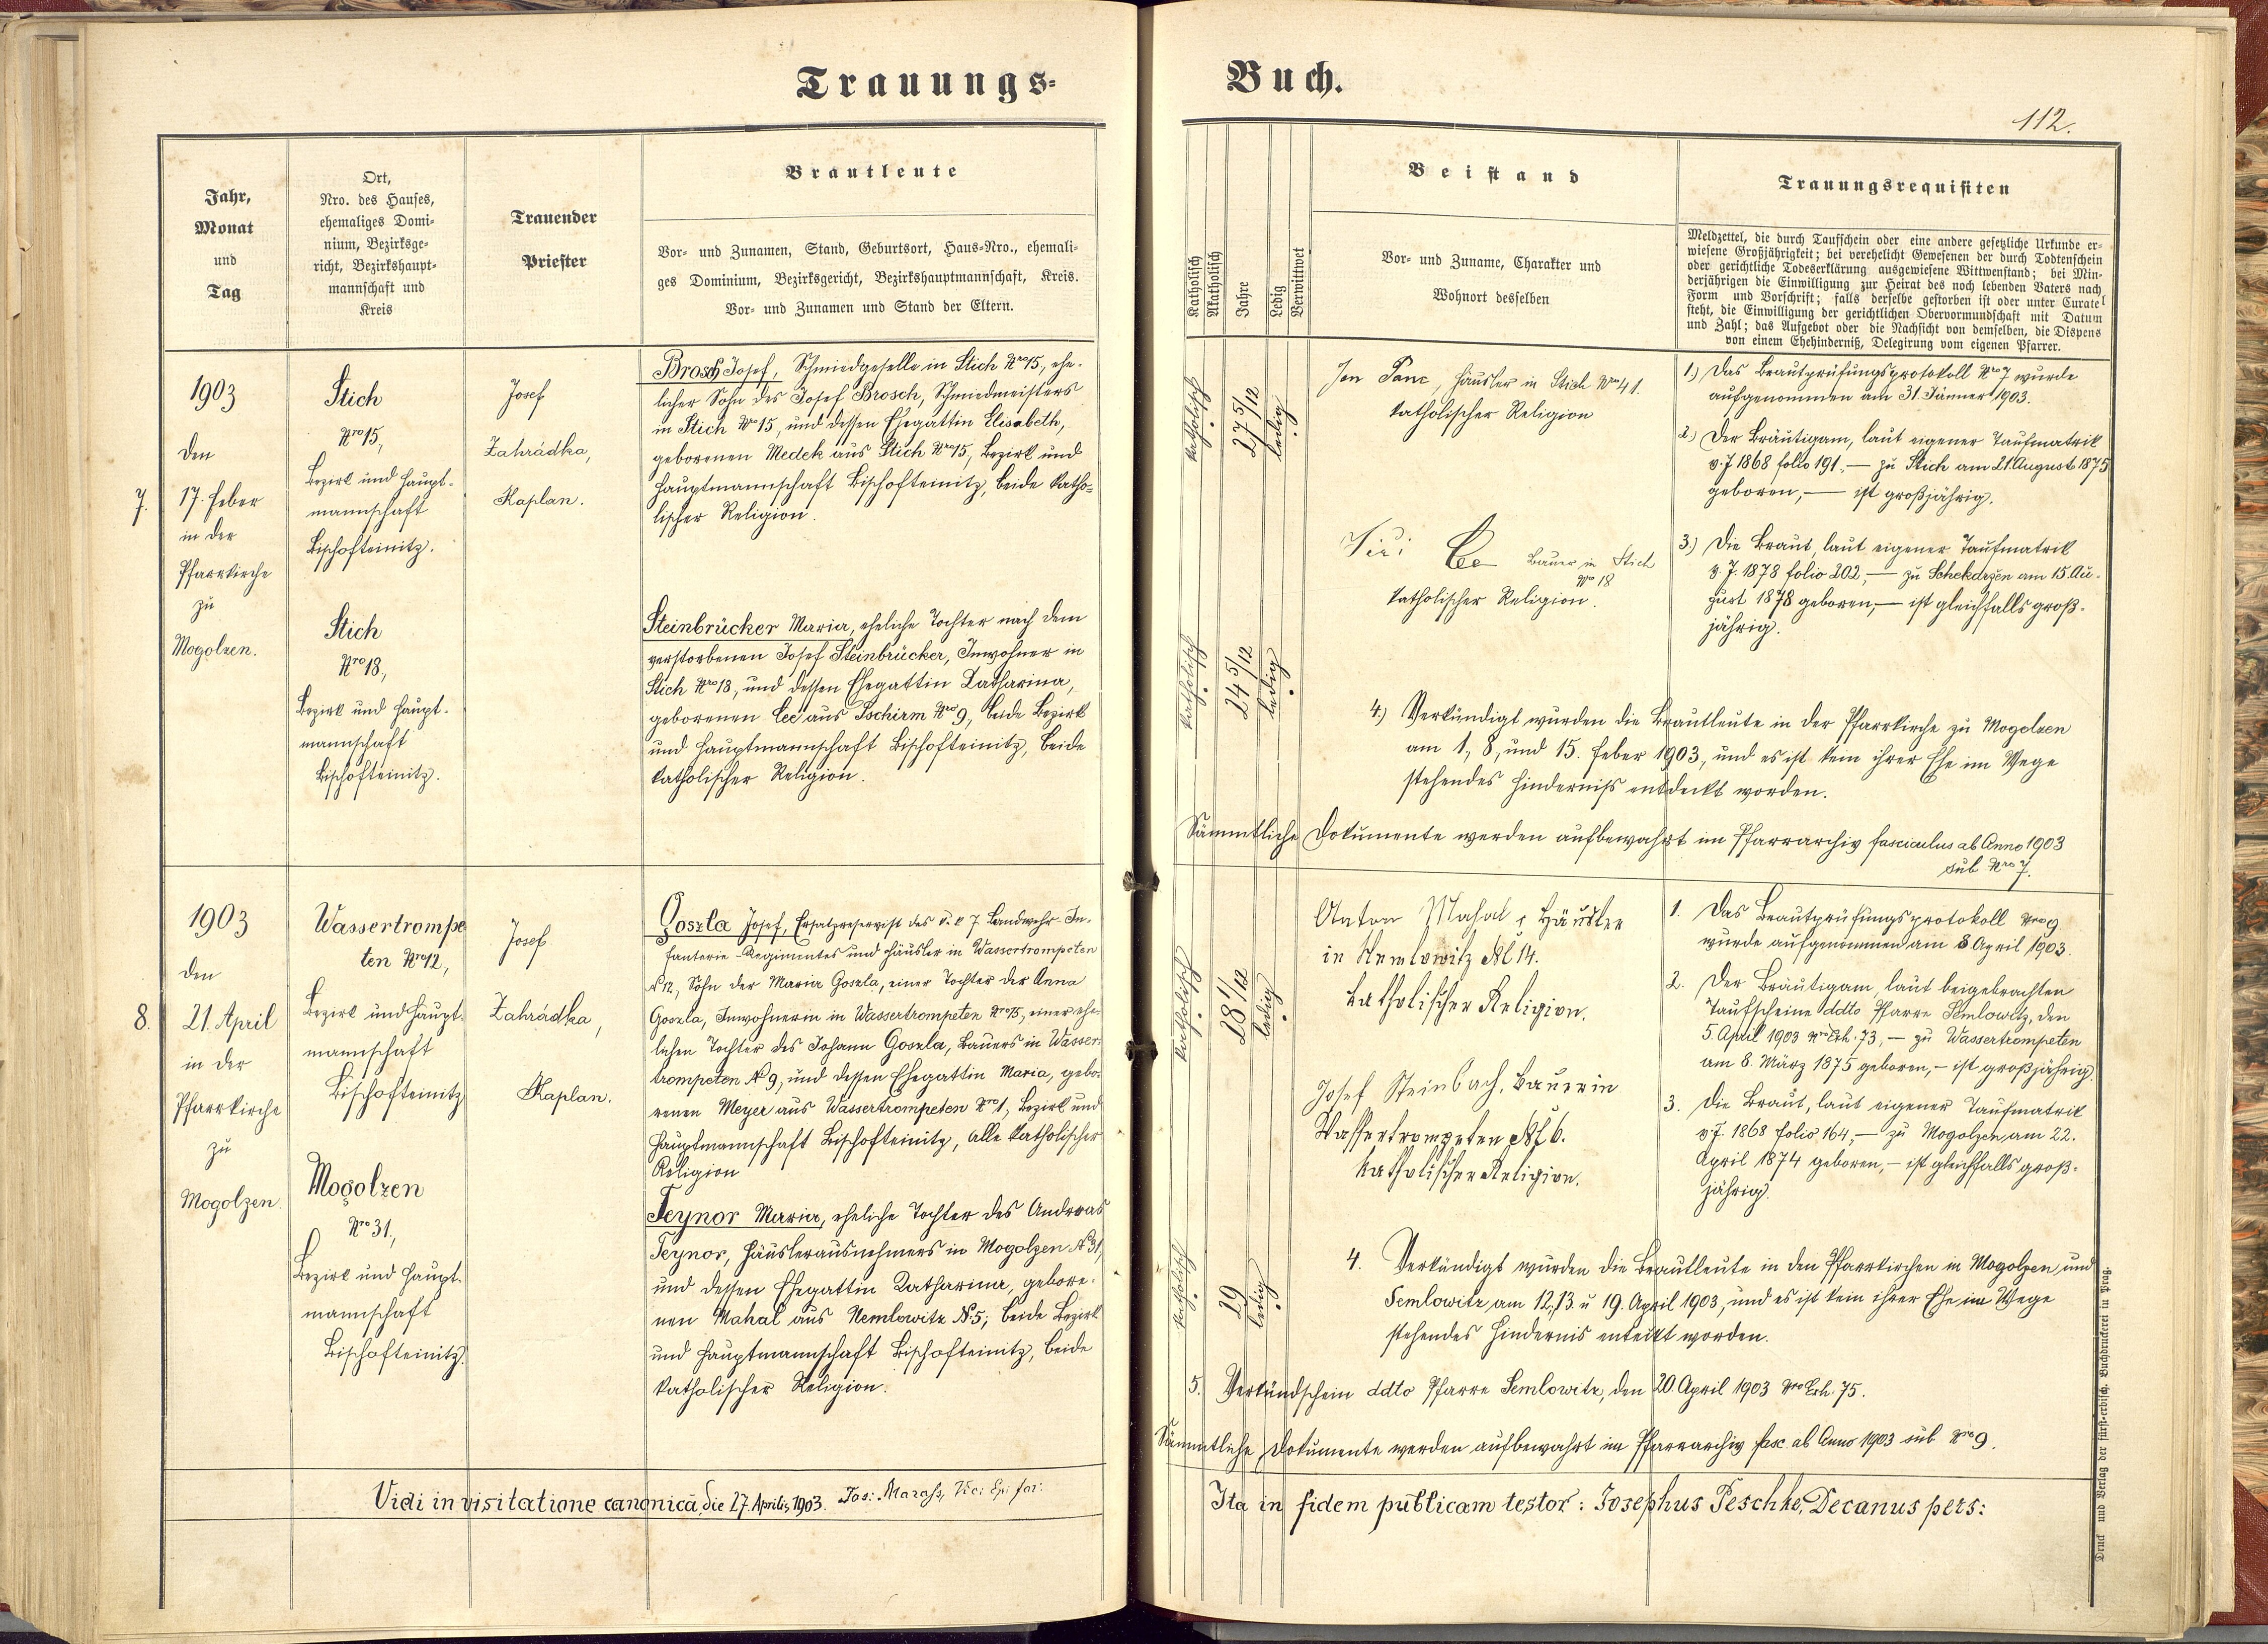 Trauungs-
Buch.
112.
Jahr,
Monat
und
Tag
Ort,
Nro. des Hauses,
ehemaliges Domi-
nium, Bezirksge-
richt, Bezirkshaupt-
mannschaft und
Kreis
Trauender
Priester
Brautleute
Vor- und Zunamen, Stand, Geburtsort, Haus-Nro., ehemali-
ges Dominium, Bezirksgericht, Bezirkshauptmannschaft, Kreis.
Vor- und Zunamen und Stand der Eltern.
Katholisch
Akatholisch
Jahre
Ledig
Verwittwet
Beistand
Vor- und Zuname, Charakter und
Wohnort desselben
Trauungsrequisiten
Meldzettel, die durch Taufschein oder eine andere gesetzliche Urkunde er-
wiesene Großjährigkeit; bei verehelicht Gewesenen der durch Todtenschein
oder gerichtliche Todeserklärung ausgewiesene Wittwenstand; bei Min-
derjährigen die Einwilligung zur Heirat des noch lebenden Vaters nach
Form und Vorschrift; falls derselbe gestorben ist oder unter Curatel
steht, die Einwilligung der gerichtlichen Obervormundschaft mit Datum
und Zahl; das Aufgebot oder die Nachsicht von demselben, die Dispens
von einem Ehehinderniß, Delegirung vom eigenen Pfarrer.
7.
1903
den
17. Feber
in der
Pfarrkirche
zu
Mogolzen.
Stich
Nro 15,
Bezirk und Haupt-
mannschaft
Bischofteinitz.
Stich
Nro 18,
Bezirk und Haupt-
mannschaft
Bischofteinitz.
Josef
Zahrádka,
Kaplan.
Brosch Josef, Schmiedgeselle in Stich Nro 15, ehe-
licher Sohn des Josef Brosch, Schmiedmeisters
in Stich Nro 15, und dessen Ehegattin Elisabeth,
geborenen Medek aus Stich Nro 15, Bezirk und
Hauptmannschaft Bischofteinitz, beide katho-
lischer Religion.
Steinbrücker Maria, eheliche Tochter nach dem
verstorbenen Josef Steinbrücker, Inwohner in
Stich Nro 18, und dessen Ehegattin Katharina,
geborenen Cec aus Tschirm Nro 9, beide Bezirk
und Hauptmannschaft Bischofteinitz, beide
katholischer Religion.
katholisch
27 5/12
ledig
katholisch
24 5/12
ledig
Jan Panc, Häusler in Stich Nro 41.
katholischer Religion
Bauer in Stich
Nro 18
katholischer Religion.
1.) Das Brautprüfungsprotokoll Nro 7 wurde
aufgenommen am 31. Jänner 1903.
2.) Der Bräutigam, laut eigener Taufmatrik
v. J. 1868 folio 191, — zu Stich am 21. August 1875
geboren, — ist großjährig.
3.) Die Braut, laut eigener Taufmatrik
v. J. 1878 folio 202, — zu Schekarzen am 15. Au-
gust 1878 geboren, — ist gleichfalls groß-
jährig.
4.) Verkündigt wurden die Brautleute in der Pfarrkirche zu Mogolzen
am 1., 8., und 15. Feber 1903, und es ist kein ihrer Ehe im Wege
stehendes Hinderniß entdeckt worden.
Sämmtliche Dokumente werden aufbewahrt im Pfarrarchiv fasciculus ab Anno 1903
sub Nro 7.
8.
1903
den
21. April
in der
Pfarrkirche
zu
Mogolzen.
Wassertrompe
ten Nro 12,
Bezirk und Haupt-
mannschaft
Bischofteinitz
Mogolzen
Nro 31.,
Bezirk und Haupt-
mannschaft
Bischofteinitz.
Josef
Zahrádka,
Kaplan.
Goszla Josef, Ersatzreservist des k. k. 7. Landwehr-In-
fanterie-Regimentes und Häusler in Wassertrompeten
N 12, Sohn der Maria Goszla, einer Tochter der Anna
Goszla, Inwohnerin in Wassertrompeten Nro 15, einer ehe-
lichen Tochter des Johann Goszla, Bauers in Wasser-
trompeten N 9, und dessen Ehegattin Maria, gebo-
renen Meyer aus Wassertrompeten Nro 1, Bezirk und
Hauptmannschaft Bischofteinitz, alle katholischer
Religion
Teynor Maria, eheliche Tochter des Andreas
Teynor, Häuslerausnehmers in Mogolzen N 31,
und dessen Ehegattin Katharina, gebore-
nen Mahal aus Nemlowitz N. 5; beide Bezirk
und Hauptmannschaft Bischofteinitz, beide
katholischer Religion.
katholisch
28 1/12
ledig
katholisch
29
ledig
Anton Mahal, Häusler
in Nemlowitz No 14.
katholischer Religion.
Josef Steinbach, Bauer in
Wassertrompeten No 6.
katholischer Religion.
1. Das Brautprüfungsprotokoll Nro 9
wurde aufgenommen am 8 April 1903.
2. Der Bräutigam, laut beigebrachten
Taufscheine ddto Pfarre Semlowitz, den
5. April 1903 Nro Exh. 73, — zu Wassertrompeten
am 8. März 1875 geboren, — ist großjährig.
3. Die Braut, laut eigener Taufmatrik
v. J. 1868 folio 164, — zu Mogolzen, am 22.
April 1874 geboren, — ist gleichfalls groß-
jährig.
4. Verkündigt wurden die Brautleute in den Pfarrkirchen in Mogolzen und
Semlowitz am 12., 13. u 19. April 1903, und es ist kein ihrer Ehe im Wege
stehendes Hindernis entdeckt worden.
5. Verkündschein ddto Pfarre Semlowitz, den 20. April 1903 Nro Exh. 75.
Sämmtliche Dokumente werden aufbewahrt im Pfarrarchiv fasc. ab Anno 1903 sub Nro 9.
Vidi in visitatione canonicâ die 27. Aprilis 1903. Jos: Marass, Vic:
Ita in fidem publicam testor: Josephus Peschke, Decanus pers:
Druck und Verlag der fürst-erzbisch. Buchdruckerei in Prag.